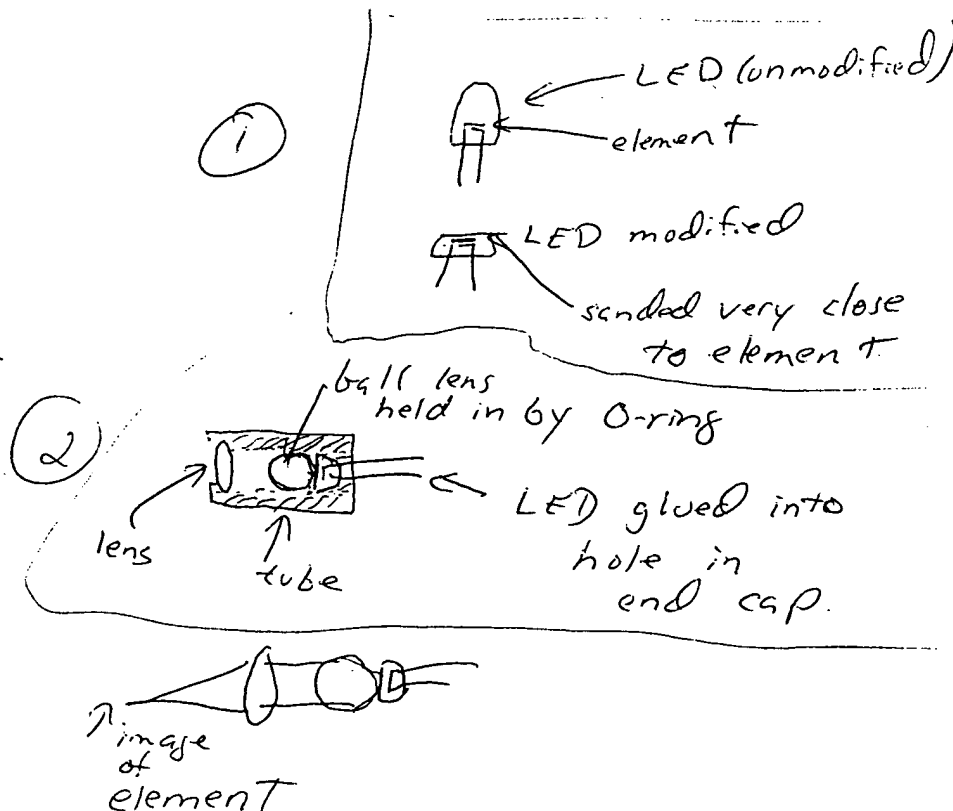 1
LED (unmodified)
element
LED modified
sanded very close
to element
2
ball lens
held in by O-ring
lens
tube
LED glued into
hole in
end cap.
image
of
element